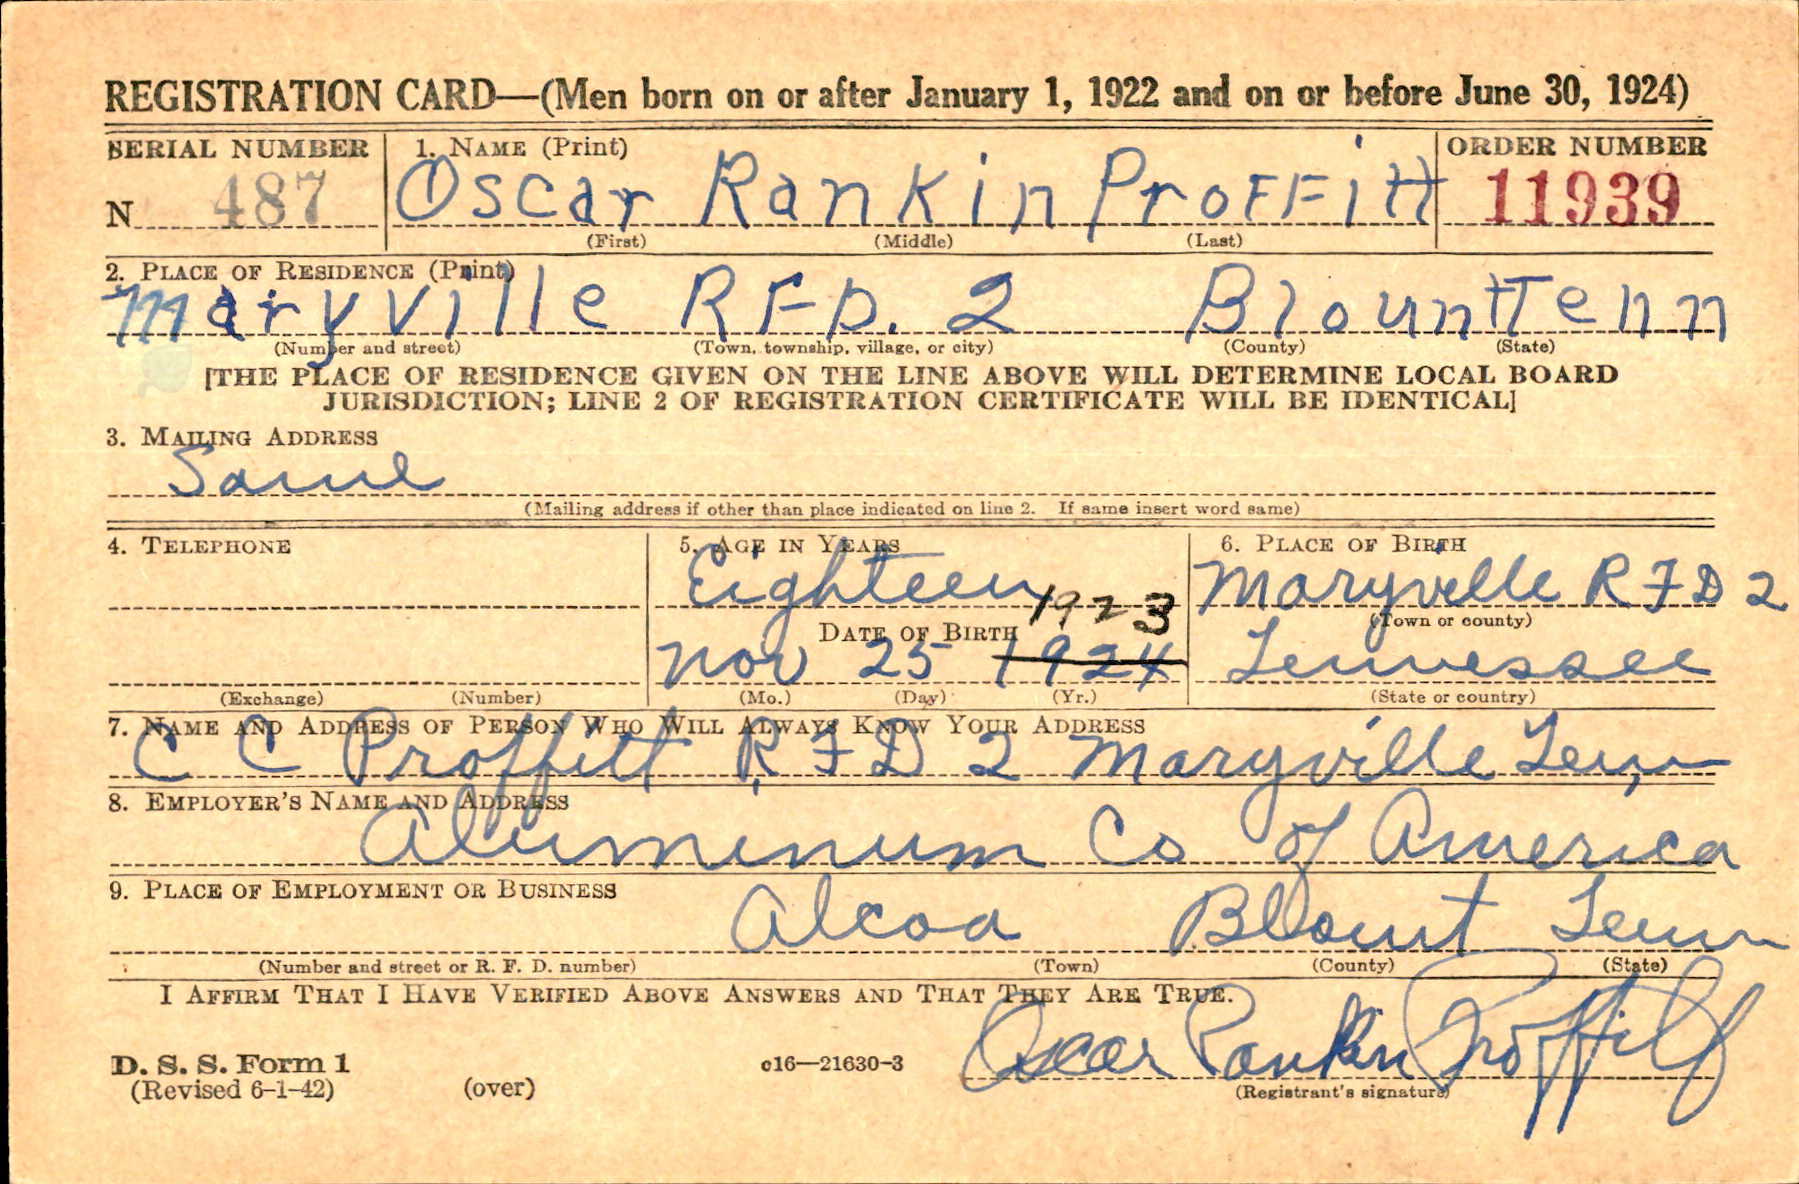 REGISTRATION CARD—(Men born on or after January 1, 1922 and on or before June 30, 1924)
SERIAL NUMBER 1. NAME (Print) ORDER NUMBER
N 487 Oscar Rankin Proffitt 11939
(First) (Middle) (Last)
2. PLACE OF RESIDENCE (Print)
Maryville RFD. 2 Blount Tenn
(Number and street) (Town, township, village, or city) (County) (State)
[THE PLACE OF RESIDENCE GIVEN ON THE LINE ABOVE WILL DETERMINE LOCAL BOARD
JURISDICTION; LINE 2 OF REGISTRATION CERTIFICATE WILL BE IDENTICAL]
3. MAILING ADDRESS
Same
(Mailing address if other than place indicated on line 2. If same insert word same)
4. TELEPHONE 5. AGE IN YEARS 6. PLACE OF BIRTH
Eighteen Maryville R F D 2
1923
DATE OF BIRTH (Town or county)
Nov 25 1924 Tennessee
(Exchange) (Number) (Mo.) (Day) (Yr.) (State or country)
7. NAME AND ADDRESS OF PERSON WHO WILL ALWAYS KNOW YOUR ADDRESS
C C Proffitt R F D 2 Maryville Tenn
8. EMPLOYER'S NAME AND ADDRESS
Aluminum Co of America
9. PLACE OF EMPLOYMENT OR BUSINESS
Alcoa Blount Tenn
(Number and street or R. F. D. number) (Town) (County) (State)
I AFFIRM THAT I HAVE VERIFIED ABOVE ANSWERS AND THAT THEY ARE TRUE.
Oscar Rankin Proffitt
D. S. S. Form 1 c16—21630-3
(Revised 6-1-42) (over) (Registrant's signature)